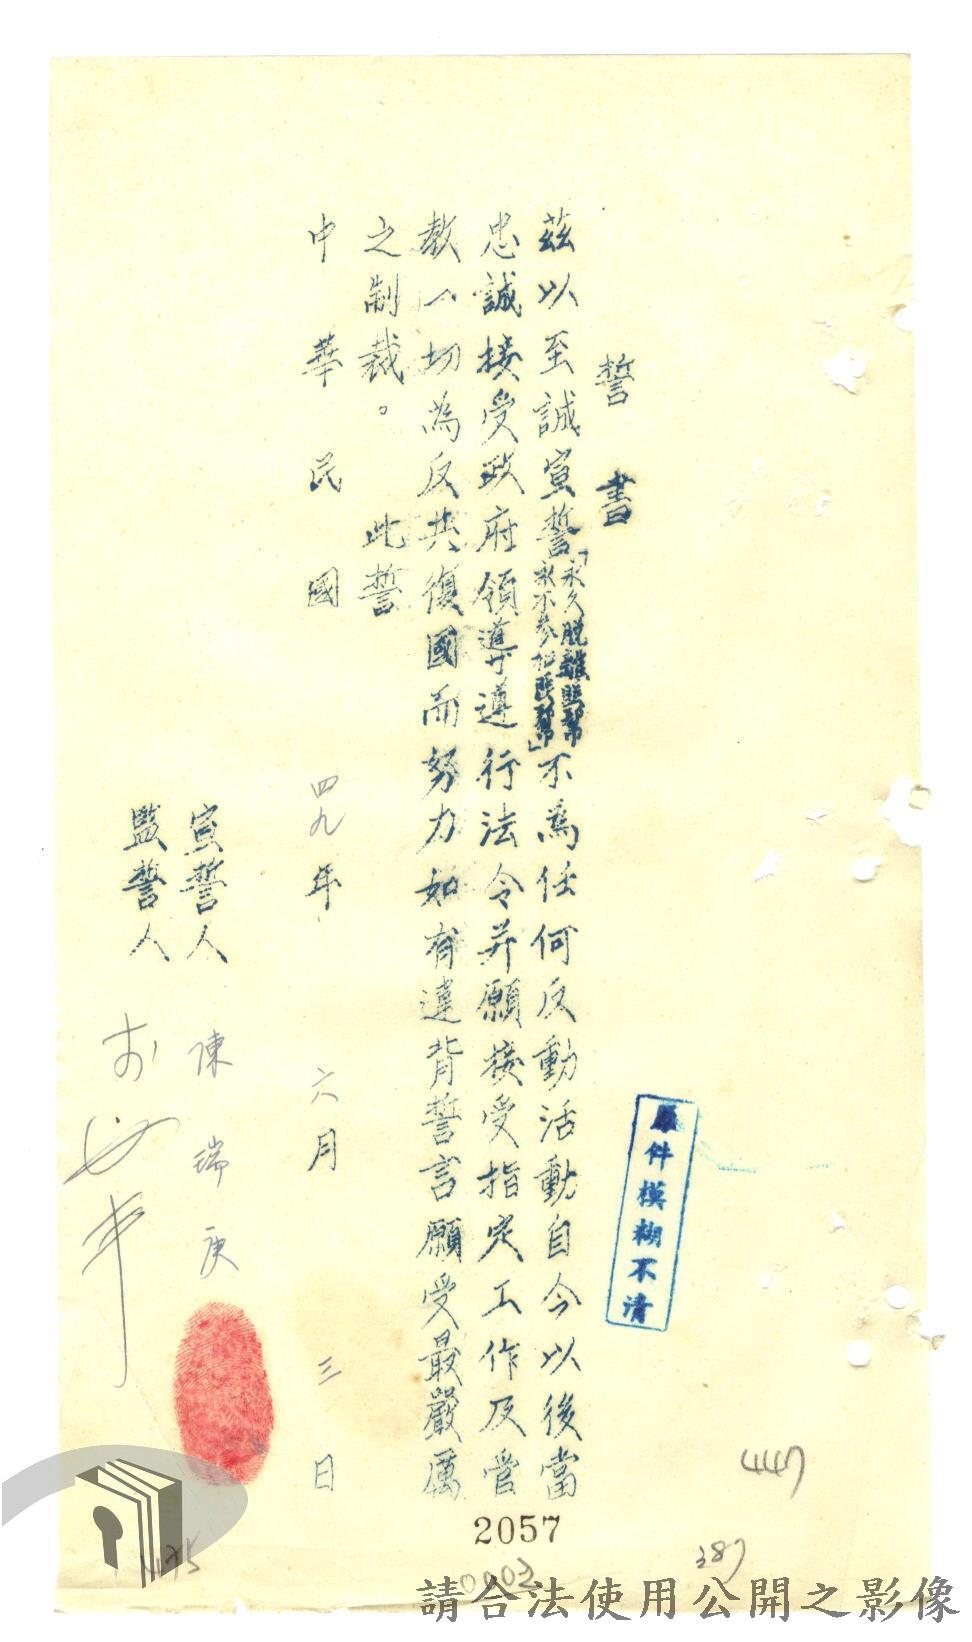 誓書
茲以至誠宣誓「永久脫離匪幫永不參加匪幫」不為任何反動活動自今以後當
忠誠接受政府領導遵行法令并願接受指定工作及管
教一切為反共復國而努力如有違背誓言願受最嚴厲
之制裁。此誓
中華民國四九年六月三日
宣誓人 陳瑞庚
監誓人
原件模糊不清
447
2057
387
0003
請合法使用公開之影像